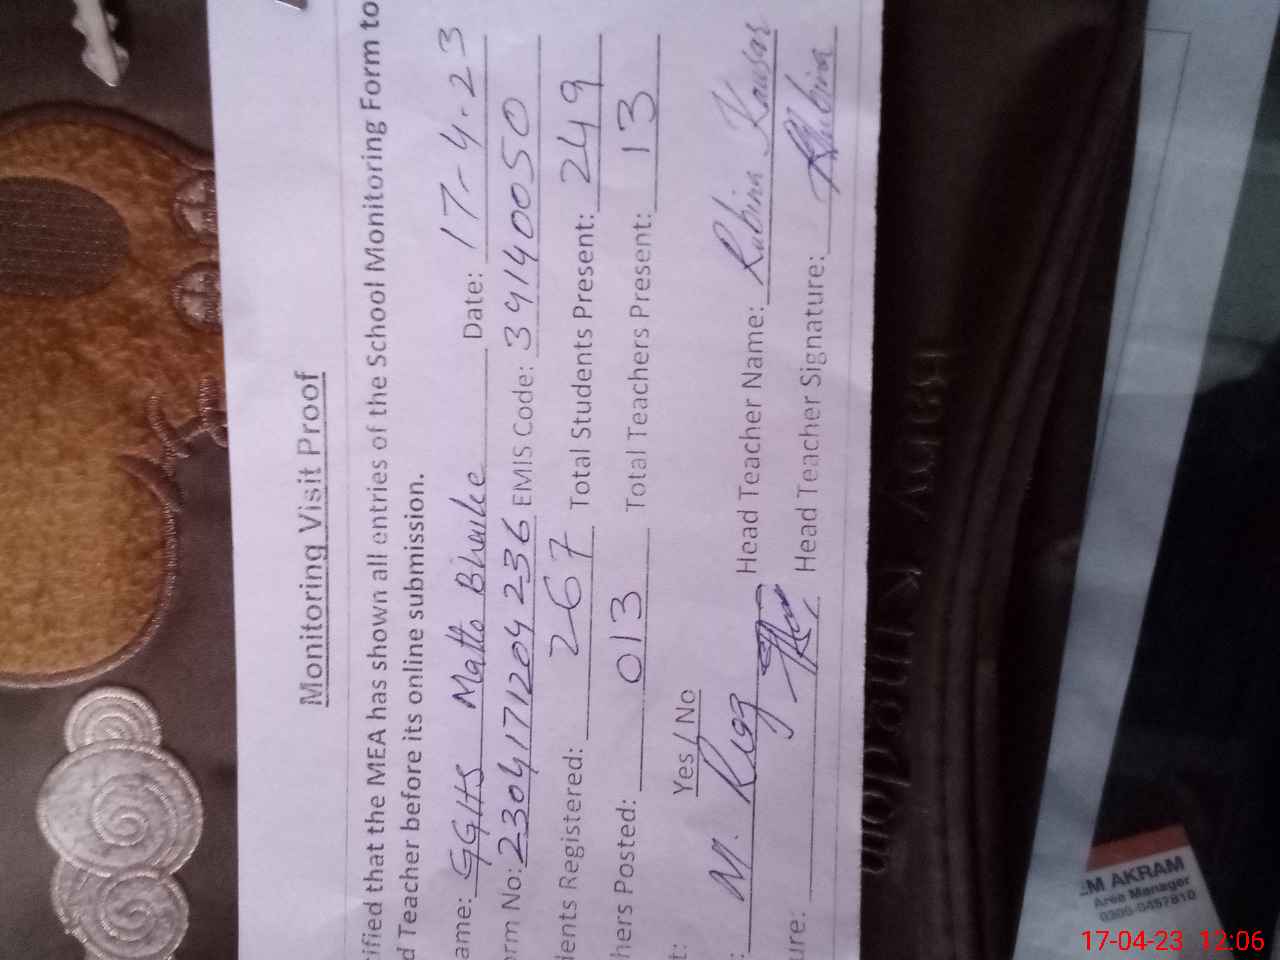 Monitoring Visit Proof
ified that the MEA has shown all entries of the School Monitoring Form to
d Teacher before its online submission.
ame: GGHS Matto Bhaike Date: 17-4-23
orm No: 2304171204236 EMIS Code: 34140050
dents Registered: 267 Total Students Present: 249
hers Posted: 013 Total Teachers Present: 13
t: Yes / No
: M. Riaz Head Teacher Name: Rubina Kausar
ure: Head Teacher Signature: Rubina
Baby Kingdom
M AKRAM
Area Manager
17-04-23 12:06